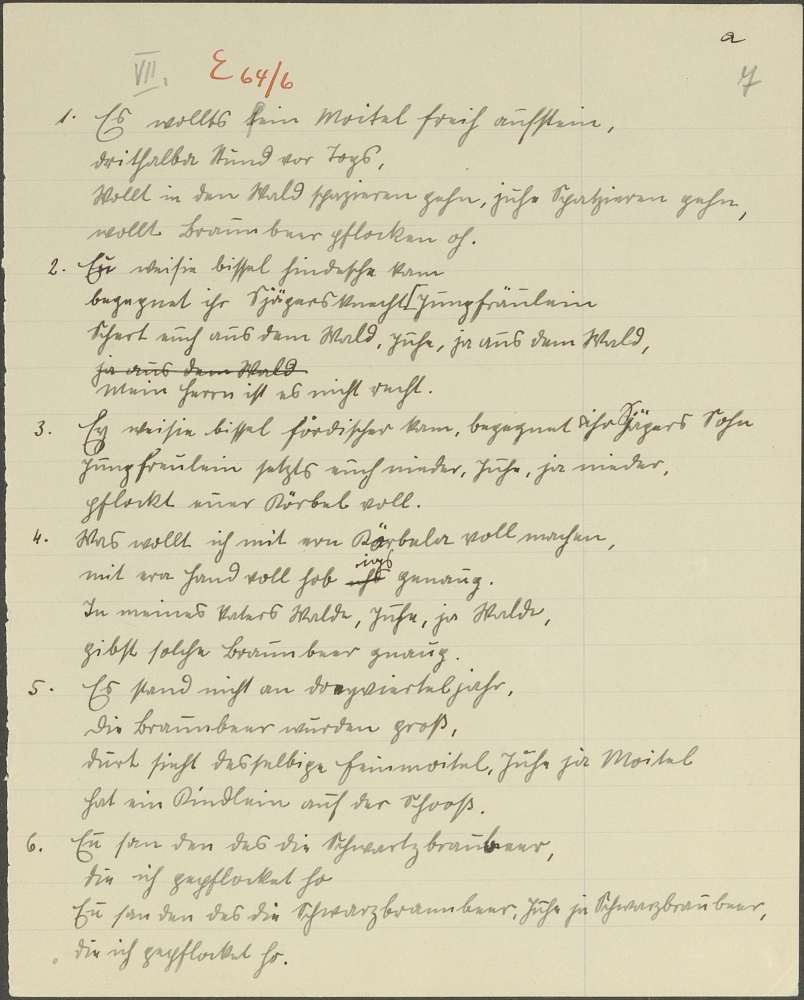 a
VII. E 64/6 7
1. Es wollts fein Moitel freih aufstein,
drithalba Stund vor Togs,
Wollt in den Wald spazieren gehn, juhe Spatzieren gehn,
wollt Braunbeer pflocken oh.
2. En weisie bissel hindesche kam
begegnet ihr Sjägersknecht [Jungfräulein
Schert euch aus dem Wald, juhe, ja aus dem Wald,
ja aus dem Wald
mein Herrn ist es nicht recht.
3. Ey weisie bissel fördischer kam, begegnet ihr Sjägers Sohn
Jungfreulein setzts euch nieder, Juhe, ja nieder,
pflockt euer Körbel voll.
4. Was wollt ich mit ern Körbela voll machen,
mit era Hand voll hob ichs genaug.
In meines Vaters Walde, Juhe, ja Walde,
gibst solche Braunbeer gnaug.
5. Es stand nicht an dreyvierteljahr,
die Braunbeer wurden groß,
durt sieht desselbige feinmoitel, Juhe ja Moitel
hat ein Kindlein auf der Schooß.
6. En san den des die Schwartzbraunbeer,
die ich gepflocket ho
En san den des die Schwarzbraunbeer, Juhe ja Schwarzbraubeer,
die ich gepflocket ho.